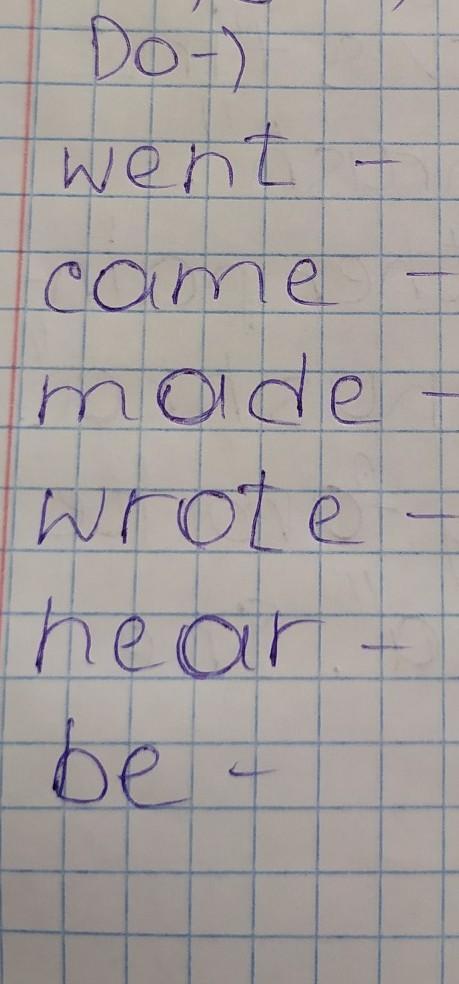 Do-)
went -
came -
made -
wrote -
hear -
be -